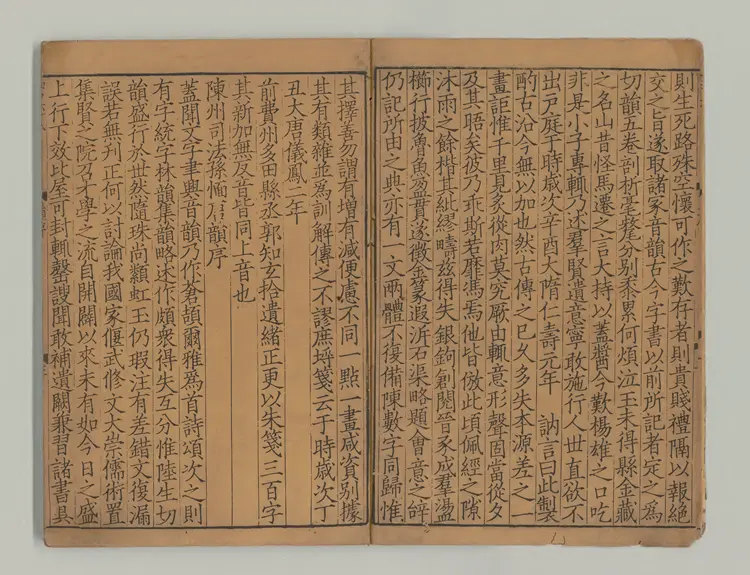 則生死路殊空懷可作之歎存者則貴賤禮隔以報絕
交之旨遂取諸家音韻古今字書以前所記者定之為
切韻五卷剖析毫氂分別黍累何煩泣玉未得縣金藏
之名山昔怪馬遷之言大持以蓋醬今歎楊雄之口吃
非是小子專輒乃述羣賢遺意寧敢施行人世直欲不
出戶庭于時歲次辛酉大隋仁壽元年 訥言曰此製
酌古沿今無以加也然古傳之已久多失本源差之一
畫詎惟千里見炙從肉莫究厥由輒意形聲固當從夕
及其晤矣彼乃乖斯若靡馮焉他皆倣此頃佩經之隙
沐雨之餘楷其紕繆疇茲得失銀鉤創閱晉豕成羣盪
櫛行披魯魚盈貫遂徵金篆遐泝石渠略題會意之辝
仍記所由之典亦有一文兩體不復備陳數字同歸惟
其擇善勿謂有增有減便慮不同一點一畫咸資別據
其有類雜並為訓解傳之不謬庶埒箋云于時歲次丁
丑大唐儀鳳二年
前費州多田縣丞郭知玄拾遺緒正更以朱箋三百字
其新加無反音皆同上音也
陳州司法孫愐唐韻序
蓋聞文字聿興音韻乃作蒼頡爾雅為首詩頌次之則
有字統字林韻集韻略述作頗衆得失互分惟陸生切
韻盛行於世然隨珠尚纇虹玉仍瑕注有差錯文復漏
誤若無刋正何以討論我國家偃武修文大崇儒術置
集賢之院召才學之流自開闢以來未有如今日之盛
上行下效比屋可封輒罄謏聞敢補遺闕兼習諸書具